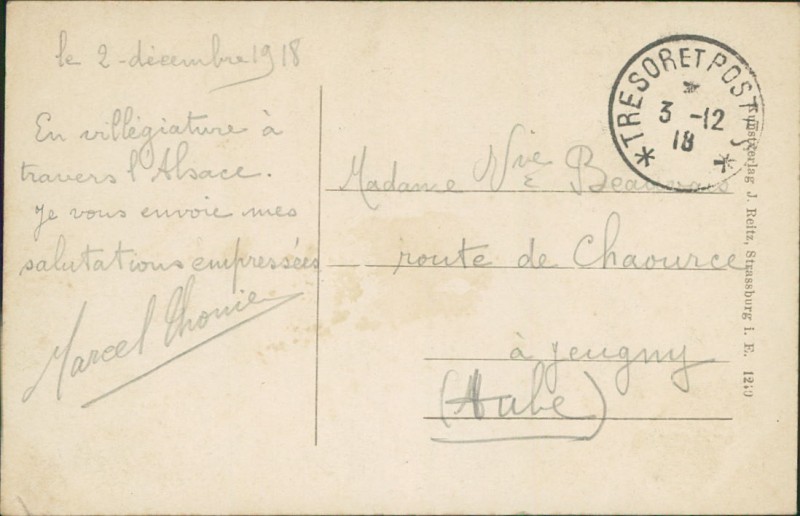 le 2 - décembre 1918
En villégiature à
travers l'Alsace.
Je vous envoie mes
salutations empressées
Marcel
TRESOR ET POSTES
3 -12
18
Madame Vve Beauvais
route de Chaource
à Jeugny
(Aube)
Kunstverlag J. Reitz, Strassburg i. E.